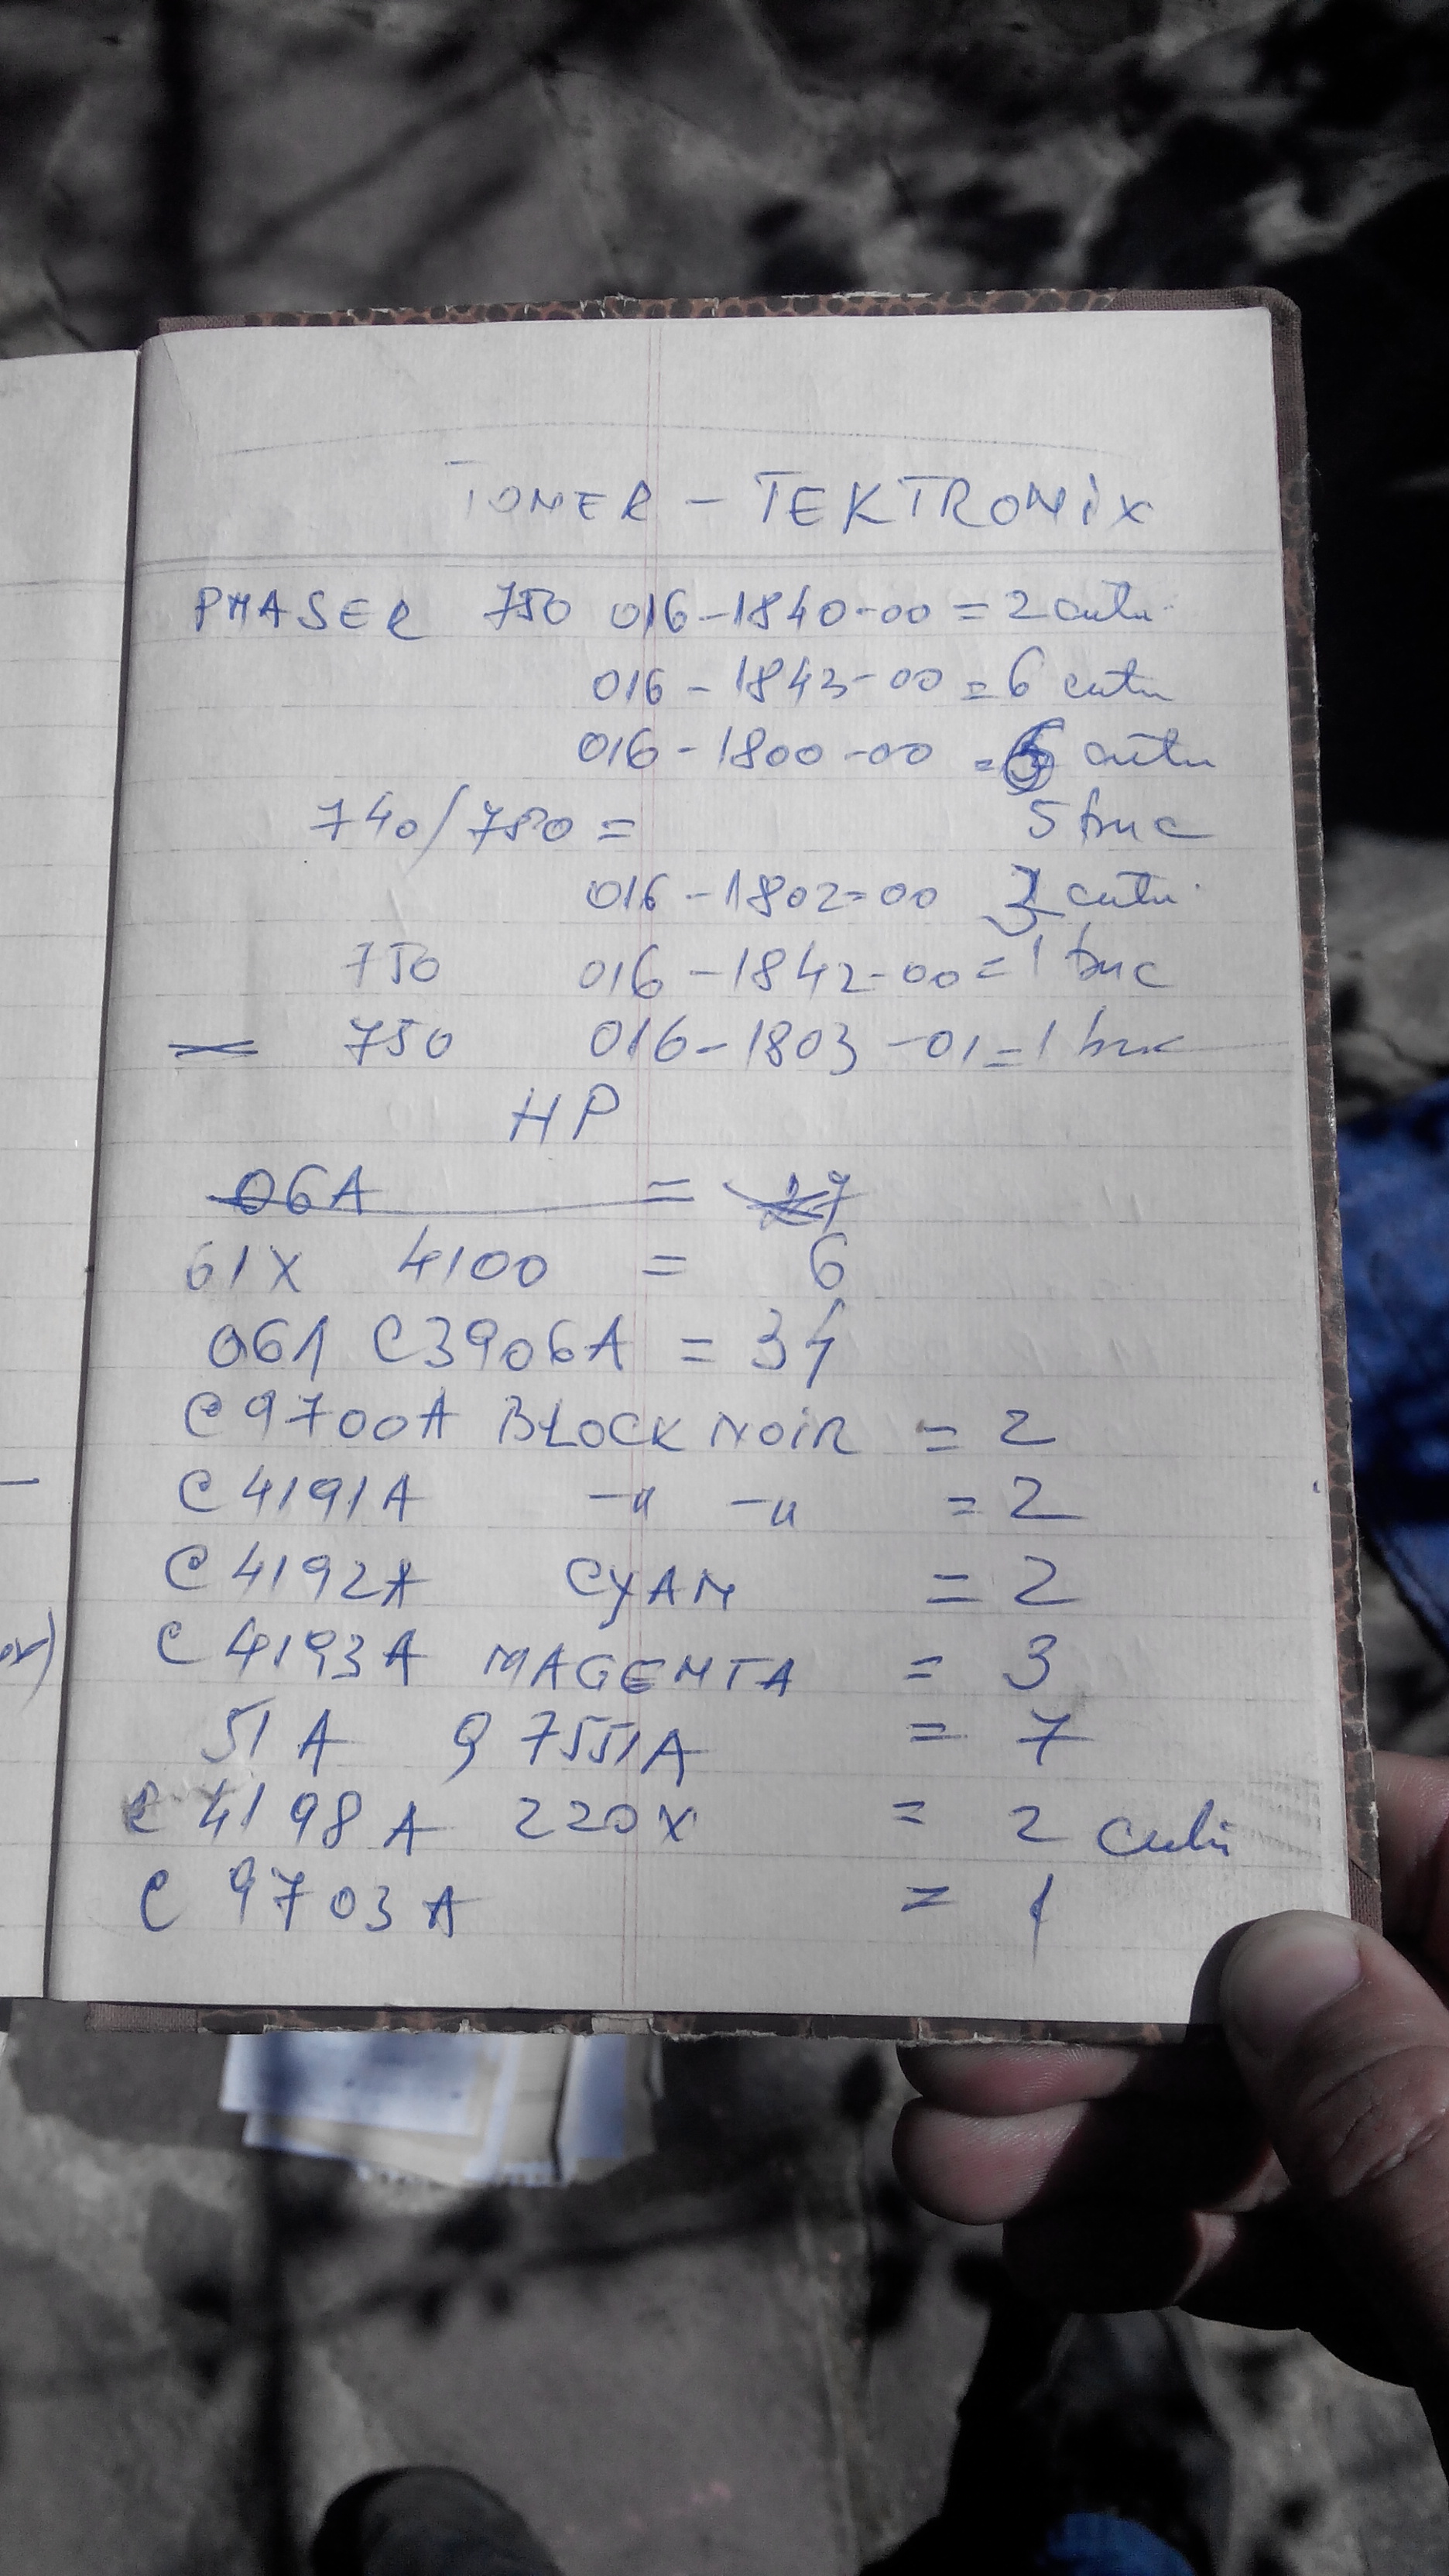 TONER - TEKTRONiX
PHASER 750 016-1840-00 = 2 cutii
016-1843-00 = 6 cutii
016-1800-00 = cutii
740/780 = 5 buc
016-1802-00 cutii
750 016-1842-00 = 1 buc
750 016-1803-01 = 1 buc
HP
06A =
61X 4100 = 6
061 C3906A = 34
C9700A BLOCK NOiR = 2
C4191A -"- -"- = 2
C4192A CYAN = 2
C4193A MAGENTA = 3
51A Q7551A = 7
C4198A 220X = 2 cutii
C9703A = 1